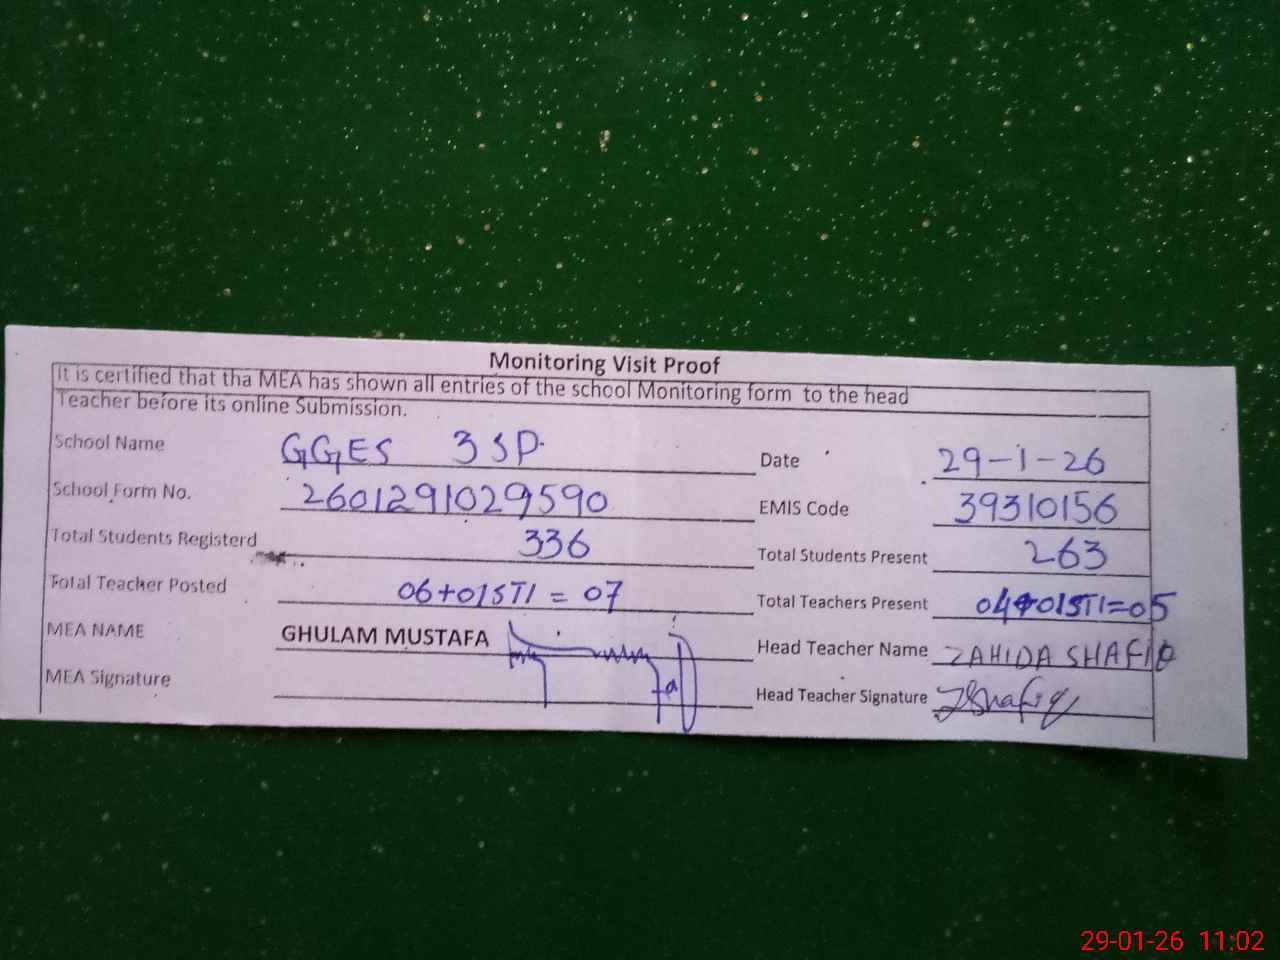 Monitoring Visit Proof
It is certified that tha MEA has shown all entries of the school Monitoring form to the head
Teacher before its online Submission.
School Name GGES 3 SP. Date 29-1-26
School Form No. 2601291029590 EMIS Code 39310156
Total Students Registerd 336 Total Students Present 263
Total Teacher Posted 06+01STI = 07 Total Teachers Present 04+01STI=05
MEA NAME GHULAM MUSTAFA Head Teacher Name ZAHIDA SHAFIQ
MEA Signature Head Teacher Signature ZShafiq
29-01-26 11:02